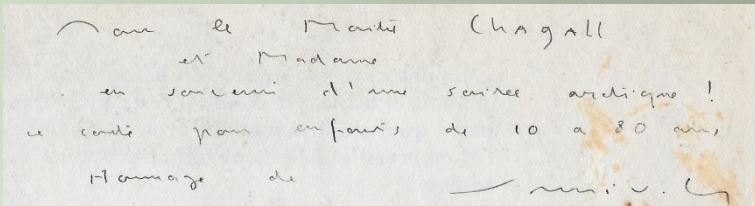 Pour le Maître Chagall
et Madame
en souvenir d'une soirée arctique !
ce conte pour enfants de 10 à 80 ans,
Hommage de